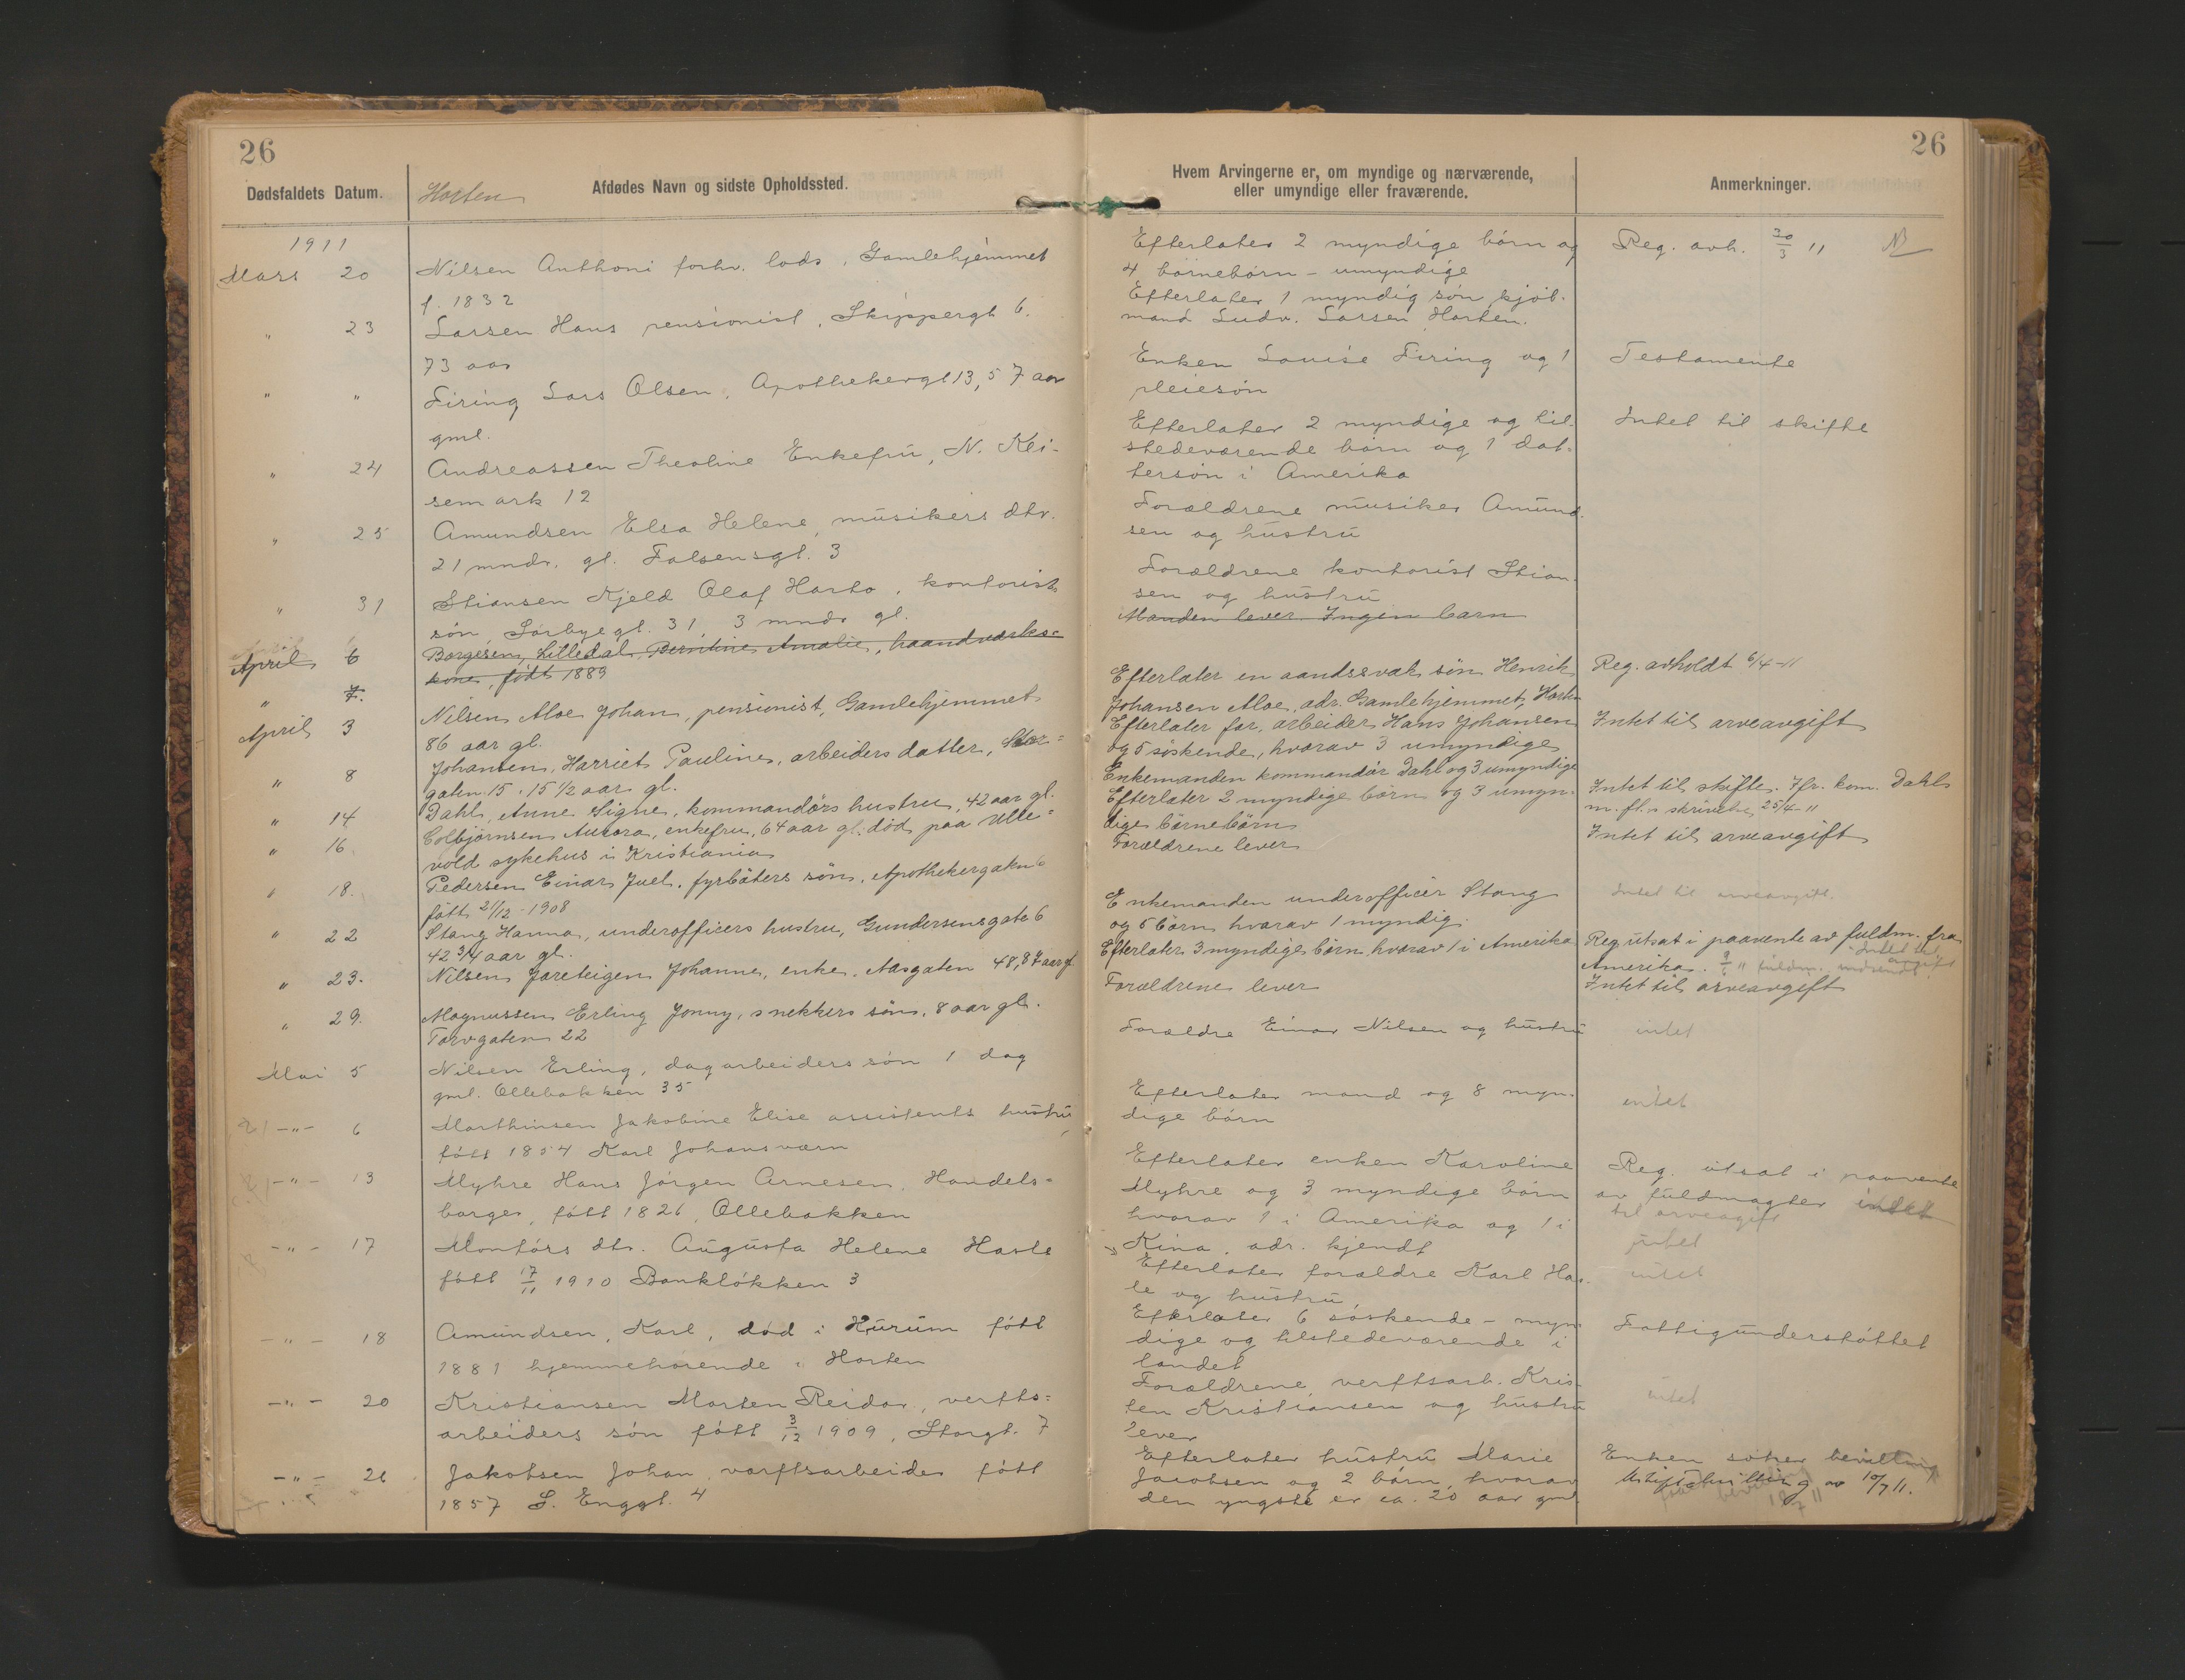 26
26
Dødsfaldets Datum.
Horten
Afdødes Navn og sidste Opholdssted.
Hvem Arvingerne er, om myndige og nærværende,
eller umyndige eller fraværende.
Anmerkninger.
1911
Mars 20
Nilsen Anthoni forhv. lods, Gamlehjemmet
f. 1832
Efterlater 2 myndige börn og
4 börnebörn - umyndige
Reg. avh. 30/3 11
" 23
Larsen Hans pensionist, Skippergt 6.
73 aar
Efterlater 1 myndig sön kjöb-
mand Ludv. Larsen Horten.
" "
Firing Lars Olsen, Apothekergt 13, 57 aar
gml.
Enken Louise Firing og 1
pleiesön
Testamente
" 24
Andreassen Theoline Enkefru, N. Kei-
semark 12
Efterlater 2 myndige og til-
stedeværende börn og 1 dat-
tersön i Amerika
Intet til skifte
" 25
Amundsen Elsa Helene, musikers dtr.
21 mndr. gl. Falsensgt. 3
Forældrene musiker Amund-
sen og hustru
" 31
Stiansen Kjeld Olaf Harto, kontorists
sön, Sörbyegt. 31, 3 mndr gl.
Forældrene kontorist Stian-
sen og hustru
April 6
Borgesen, Lilledal, Berntine Amalie, haandverks-
kone, født 1889
Manden lever. Ingen barn
" 7.
April 3
Nilsen Aloe Johan, pensionist, Gamlehjemmet
86 aar gl.
Efterlater en aandssvak sön Henrik
Johansen Aloe, adr. Gamlehjemmet, Horten
Reg. avholdt 6/4-11
" 8
Johansen, Harriet Pauline, arbeiders datter, Stor-
gaten 15. 15 1/2 aar gl.
Efterlater far, arbeider Hans Johansen
og 5 söskende, hvorav 3 umyndige
Intet til arveavgift
" 14
Dahl, Anne Signe, kommandørs hustru, 42 aar gl.
Enkemanden kommandør Dahl og 3 umyndige
Intet til skifte. Jfr. kom. Dahls
m. fl.s skrivelse 25/4-11
" 16
Colbjørnsen Aurora, enkefru, 64 aar gl. død paa Ulle-
vold sykehus i Kristiania
Efterlater 2 myndige børn og 3 umyn-
dige børnebørn
Intet til arveavgift
" 18.
Pedersen Einar Juel, fyrbøters søn, Apothekergaten 6
født 21/12-1908
Forældrene lever
Intet til arveavgift.
" 22
Stang Hanna, underofficers hustru, Gundersensgate 6
42 3/4 aar gl.
Enkemanden underofficer Stang
og 5 børn hvorav 1 myndig.
" 23.
Nilsen Joreteigen Johanne, enke. Aasgaten 48, 87 aar gl
Efterlater 3 myndige børn, hvorav 1 i Amerika
Reg. utsat i paavente av fuldm. fra
Amerika. fuldm. indsendt
" 29.
Magnussen Erling Jonny, snekkers søn, 8 aar gl.
Torvgaten 22
Forældrene lever
Intet til arveavgift
Mai 5
Nilsen Erling, dagarbeiders sön 1 dag
gml. Ollebakken 35
Forældre Einar Nilsen og hustru
intet
-"- 6
Marthinsen Jakobine Elise assistents hustru,
fött 1854 Karl Johansværn
Efterlater mand og 8 myn-
dige börn
intet
-"- 13
Myhre Hans Jörgen Arnesen, Handels-
borger, fött 1826, Ollebakken
Efterlater enken Karoline
Myhre og 3 myndige börn
hvorav 1 i Amerika og 1 i
Kina, adr. kjendt
Reg. utsat i paavente
av fuldmagter intet
til arveavgift
intet
-"- 17
Montörs dtr. Augusta Helene Hasle
fött 17/11 1910 Banklökken 3
Efterlater forældre Karl Has-
le og hustru
intet
-"- 18
Amundsen, Karl, död i Hurum fött
1881 hjemmehörende i Horten
Efterlater 6 söskende - myn-
dige og tilstedeværende i
landet
Fattigunderstöttet
-"- 20
Kristiansen Morten Reidar, verfts-
arbeiders sön fött 3/12 1909, Storgt. 7
Forældrene, verftsarb. Kris-
ten Kristiansen og hustru
lever
intet
-"- 26
Jakobsen Johan, værftsarbeider fött
1857 S. Enggt. 4
Efterlater hustru Marie
Jacobsen og 2 börn, hvorav
den yngste er ca. 20 aar gml
Enken söker bevilling
Uskiftebevilling av 10/7 11.